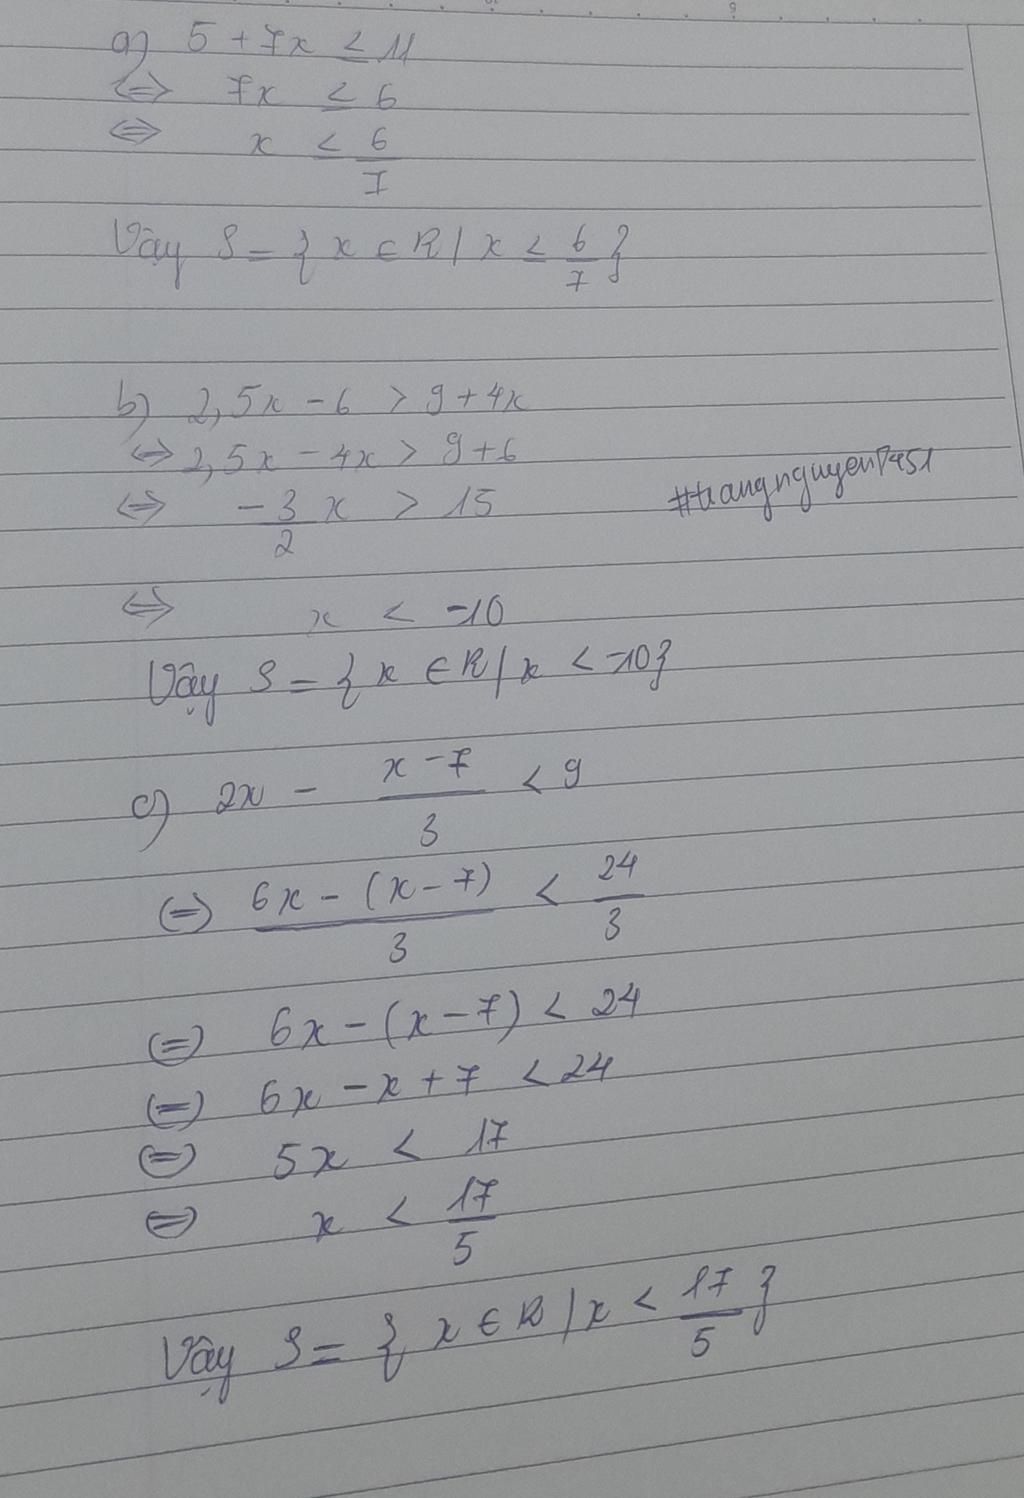 a) 5 + 7x ≤ 11
⇔ 7x ≤ 6
⇔ x ≤ 6/7
Vậy S = { x ∈ R / x ≤ 6/7 }
b) 2,5x - 6 > 9 + 4x
⇔ 2,5x - 4x > 9 + 6
⇔ -3/2 x > 15
#trangnguyen7451
⇔ x < -10
Vậy S = { x ∈ R / x < -10 }
c) 2x - (x - 7)/3 < 9
⇔ (6x - (x - 7))/3 < 24/3
⇔ 6x - (x - 7) < 24
⇔ 6x - x + 7 < 24
⇔ 5x < 17
⇔ x < 17/5
Vậy S = { x ∈ R / x < 17/5 }